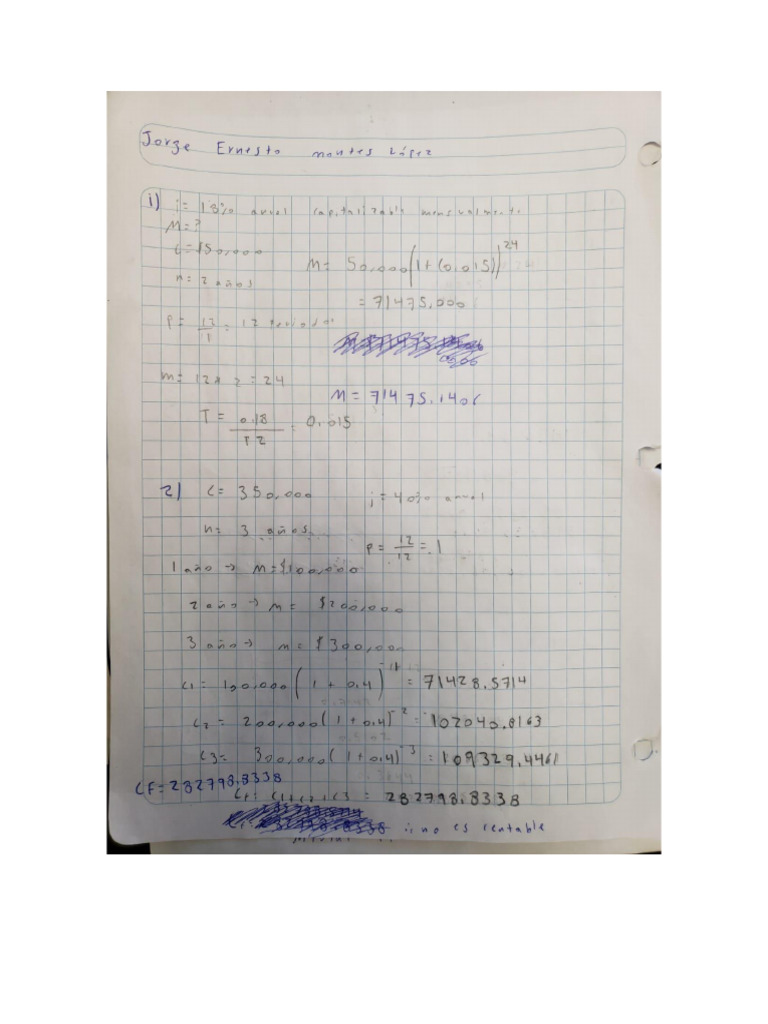 Jorge Ernesto montes López
1) i= 18% anual capitalizable mensualmente
M=?
C=$50,000
M= 50,000(1+(0.015))^24
n= 2 años
= 71475,000
P= 12/1 = 12 periodos
m= 12x2=24
M= 71475.140
T= 0.18/12 = 0.015
2) C= 350,000 i=40% anual
n= 3 años
P= 12/12 = 1
1 año → M=$100,000
2 año → M= $200,000
3 año → M= $300,000
C1= 100,000(1 + 0.4)^-1 = 71428.5714
C2 = 200,000(1+0,4)^-2 = 102040.8163
C3= 300,000(1+0.4)^-3 = 109329.4461
CF=282798.8338
= 282798.8338
no es rentable